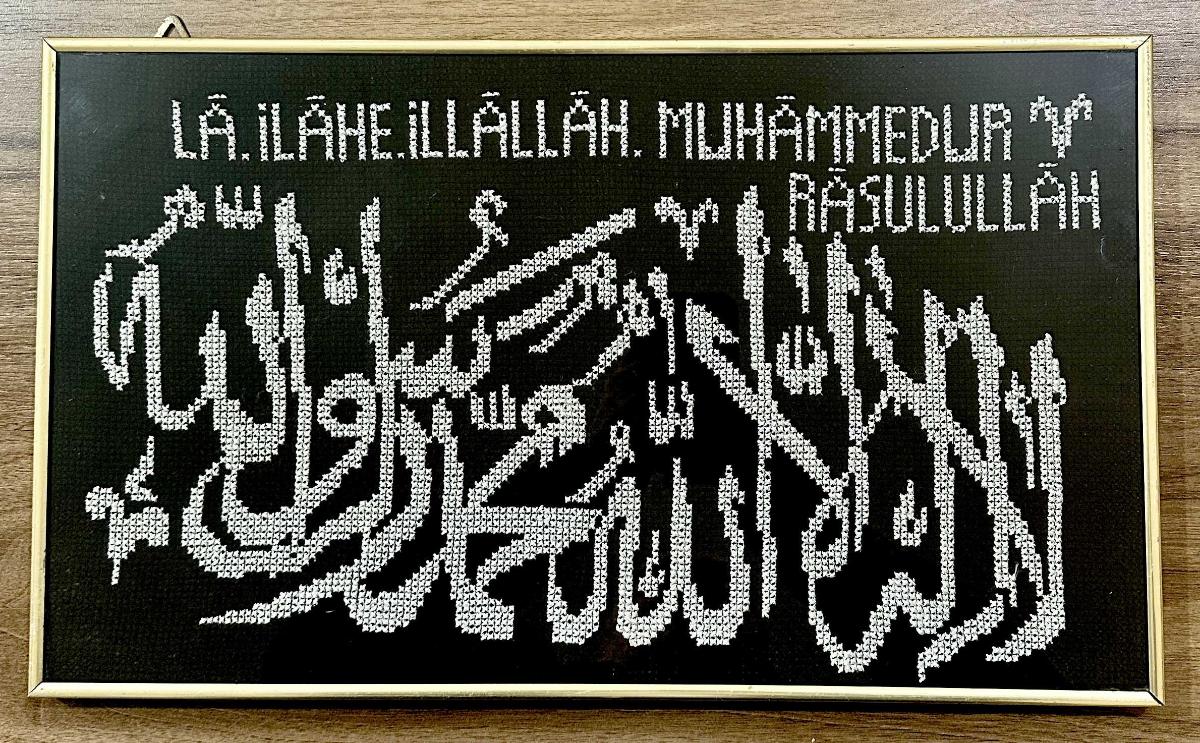 LÂ.İLÂHE.İLLÂLLÂH. MUHÂMMEDUR
RÂSULULLÂH
لا إله إلا الله محمد رسول الله